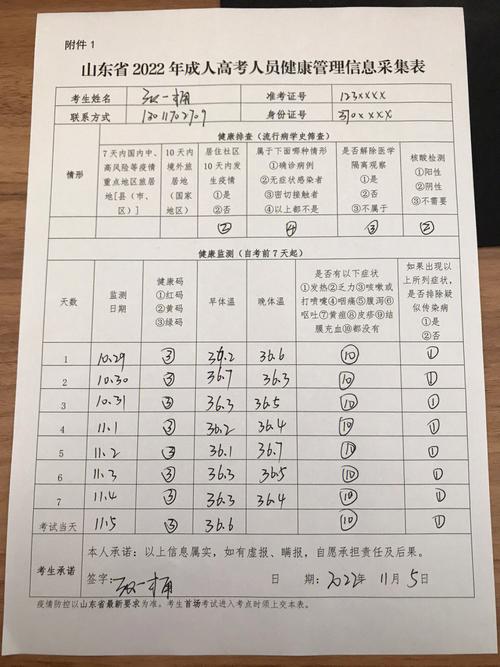 附件 1
山东省 2022 年成人高考人员健康管理信息采集表
考生姓名 准考证号 123xxxx
联系方式 13011702709 身份证号 370xxxx
健康排查（流行病学史筛查）
情形
7 天内国内中、高风险等疫情重点地区旅居地[县（市、区）]
10 天内境外旅居地（国家地区）
居住社区10 天内发生疫情 ①是 ②否
属于下面哪种情形 ①确诊病例 ②无症状感染者 ③密切接触者 ④以上都不是
是否解除医学隔离观察 ①是 ②否 ③不属于
核酸检测 ①阳性 ②阴性 ③不需要
② ④ ③ ②
健康监测（自考前 7 天起）
天数
监测日期
健康码 ①红码 ②黄码 ③绿码
早体温
晚体温
是否有以下症状 ①发热②乏力③咳嗽或打喷嚏④咽痛⑤腹泻⑥呕吐⑦黄疸⑧皮疹⑨结膜充血⑩都没有
如果出现以上所列症状，是否排除疑似传染病 ①是 ②否
1 10.29 ③ 36.2 36.6 ⑩ ①
2 10.30 ③ 36.7 36.3 ⑩ ①
3 10.31 ③ 36.3 36.5 ⑩ ①
4 11.1 ③ 36.2 36.4 ⑩ ①
5 11.2 ③ 36.1 36.7 ⑩ ①
6 11.3 ③ 36.3 36.5 ⑩ ①
7 11.4 ③ 36.3 36.4 ⑩ ①
考试当天 11.5 ③ 36.6 ⑩ ①
考生承诺
本人承诺：以上信息属实，如有虚报、瞒报，自愿承担责任及后果。
签字： 日 期：2022年 11月 5日
疫情防控以山东省最新要求为准。考生首场考试进入考点时须上交本表。